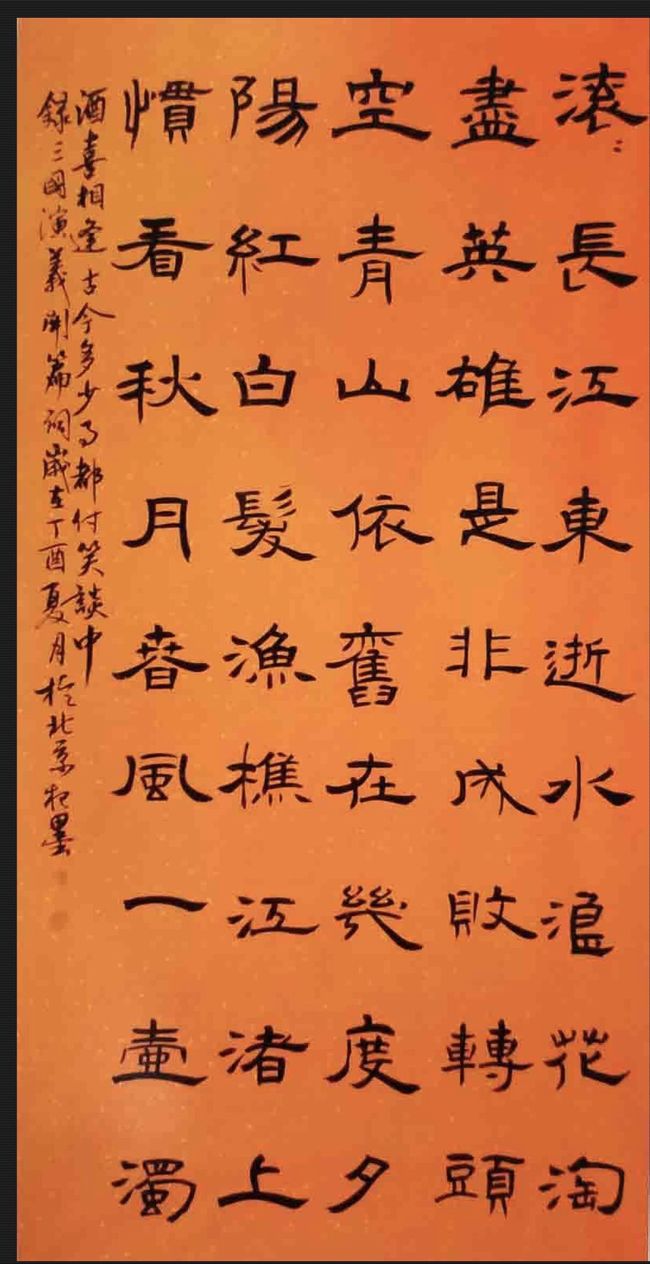 滚〻長江東逝水浪花淘
盡英雄是非成敗轉頭
空青山依舊在幾度夕
陽紅白髮漁樵江渚上
慣看秋月春風一壺濁
酒喜相逢古今多少事都付笑談中
録三國演義開篇詞歲在丁酉夏月於北京墨